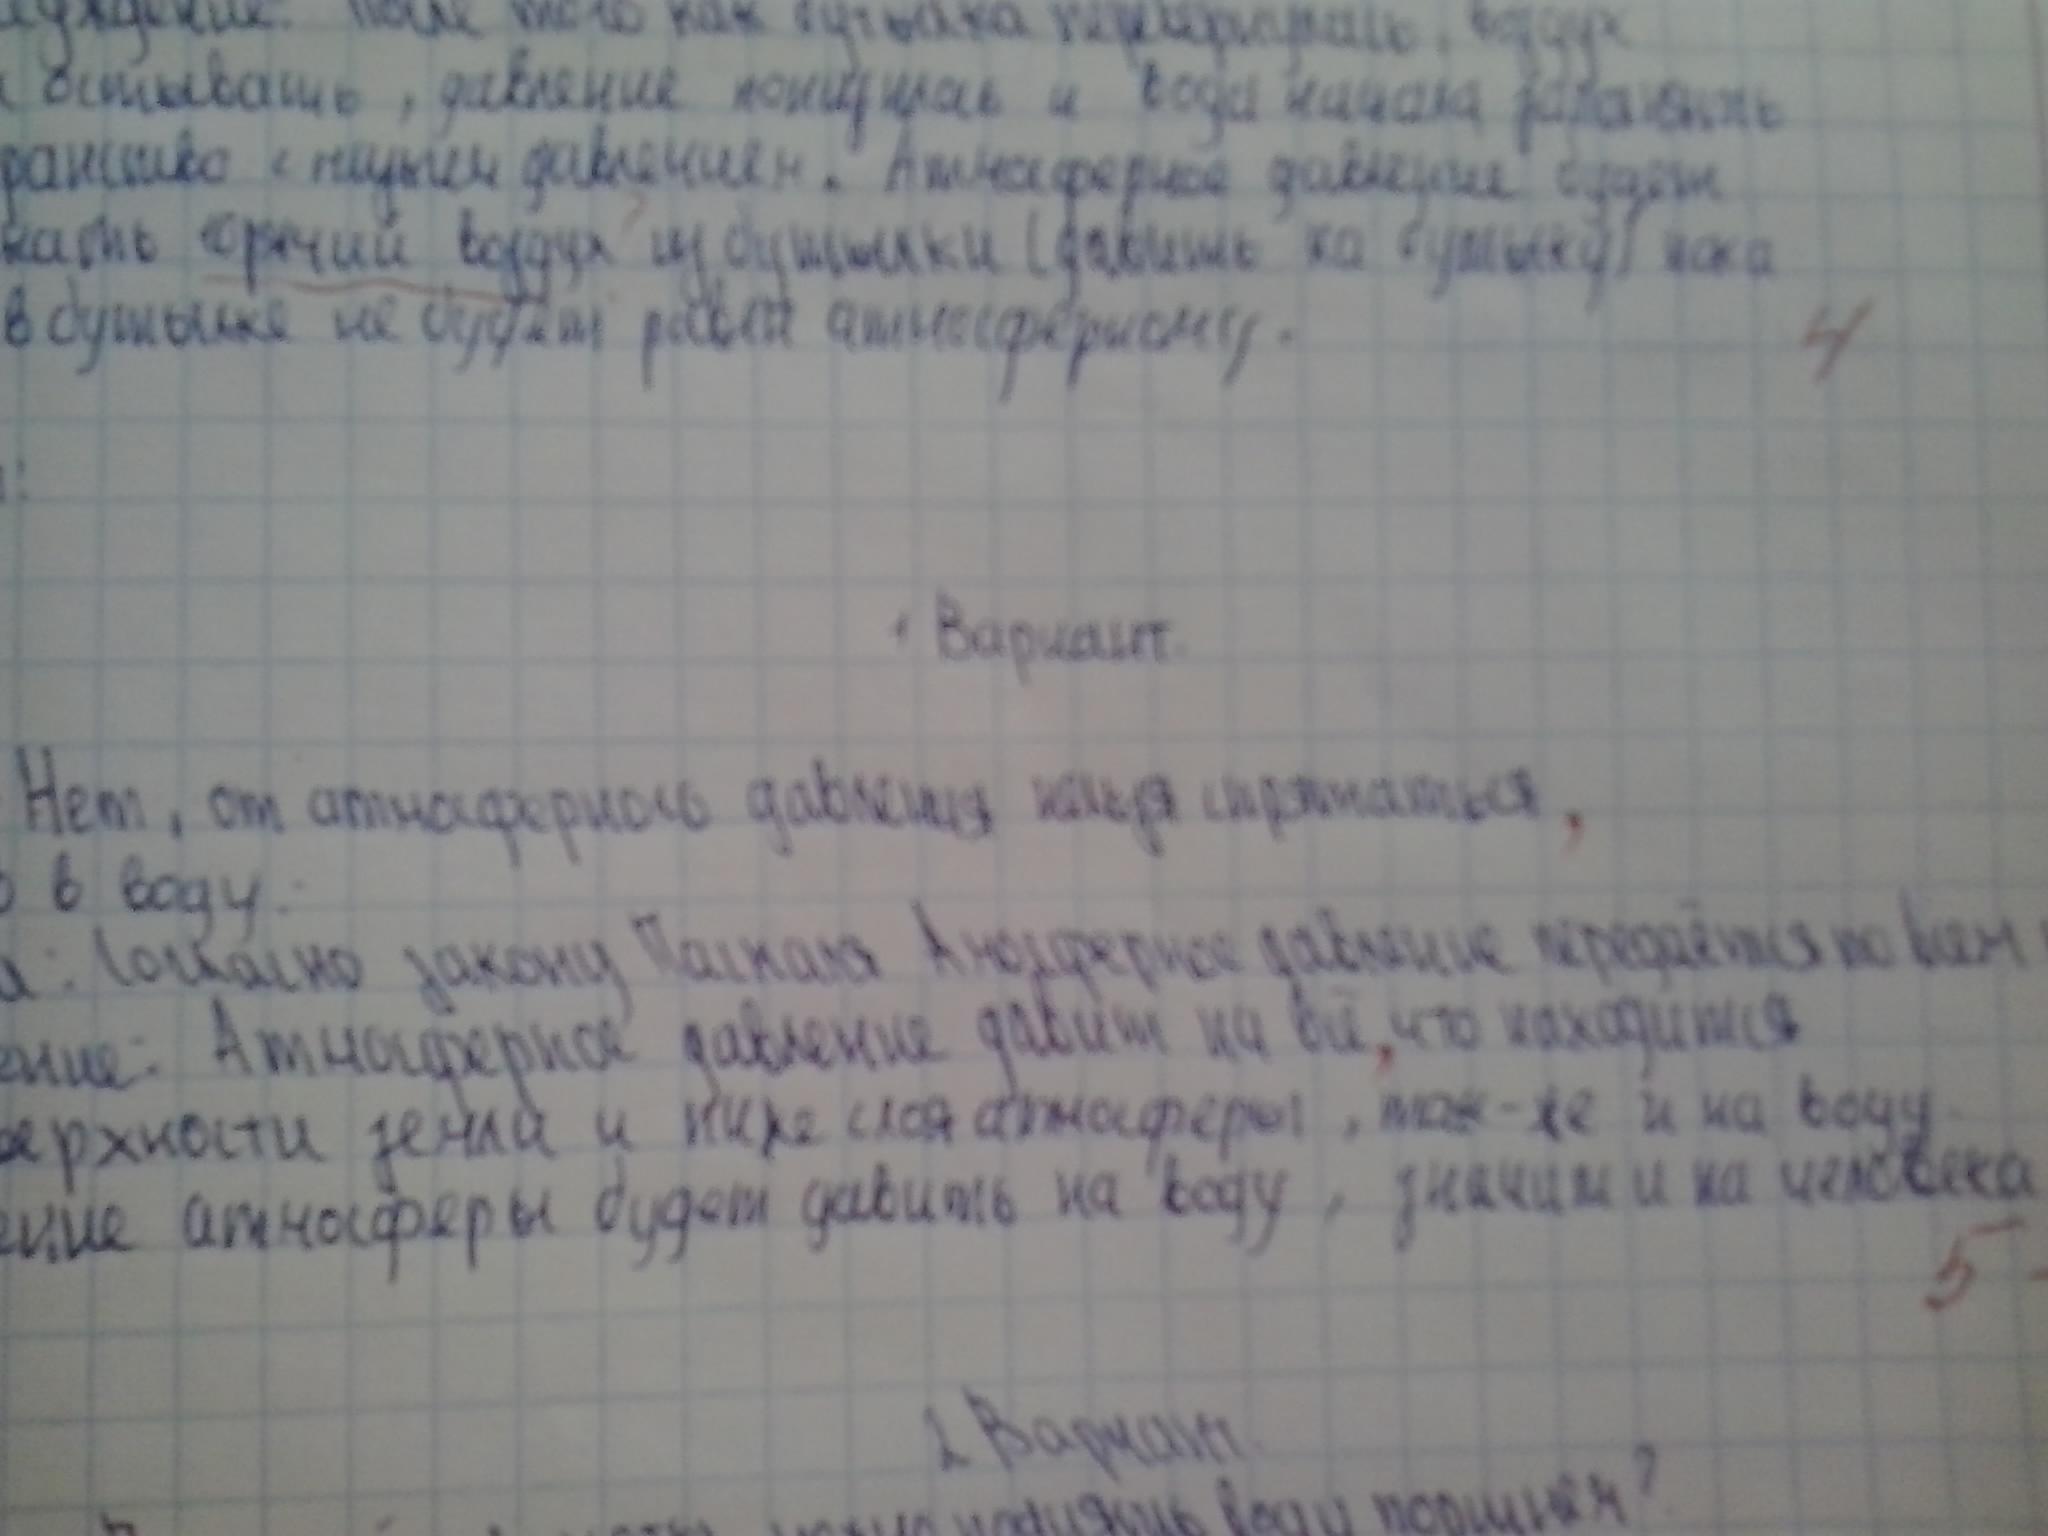 после того как бутылка перевернулась, воздух
остывать, давление понизилась и вода начала заполнять
с низким давлением. Атмосферное давление будет
горячий воздух из бутылки (давить на бутылку) пока
в бутылке не будет равен атмосферному.
4
1 Вариант.
Нет, от атмосферного давления нельзя спрятаться,
в воду.
Согласно закону Паскаля Атмосферное давление передаётся по всем
ение: Атмосферное давление давит на всё, что находится
ерхности земли и ниже слоя атмосферы, так-же и на воду.
ение атмосферы будет давить на воду, значит и на человека
5-
2 Вариант.
можно поднять воду поршнем?